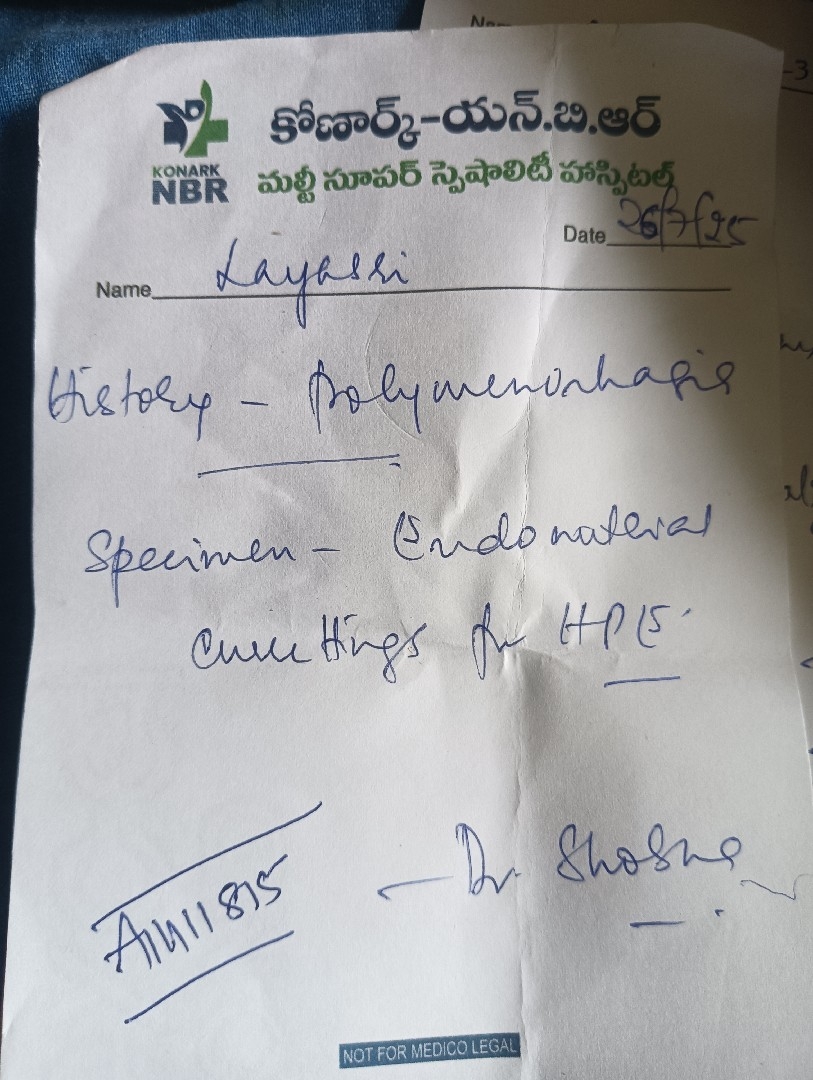 No
-3
KONARK
NBR
కోణార్క్-యన్.బి.ఆర్
మల్టీ సూపర్ స్పెషాలిటీ హాస్పిటల్
Date 26/7/25
Name Layassi
History - Polymenorrhagia
Specimen - Endometerial
Curettings for HPE
- Dr. Shobha
NOT FOR MEDICO LEGAL